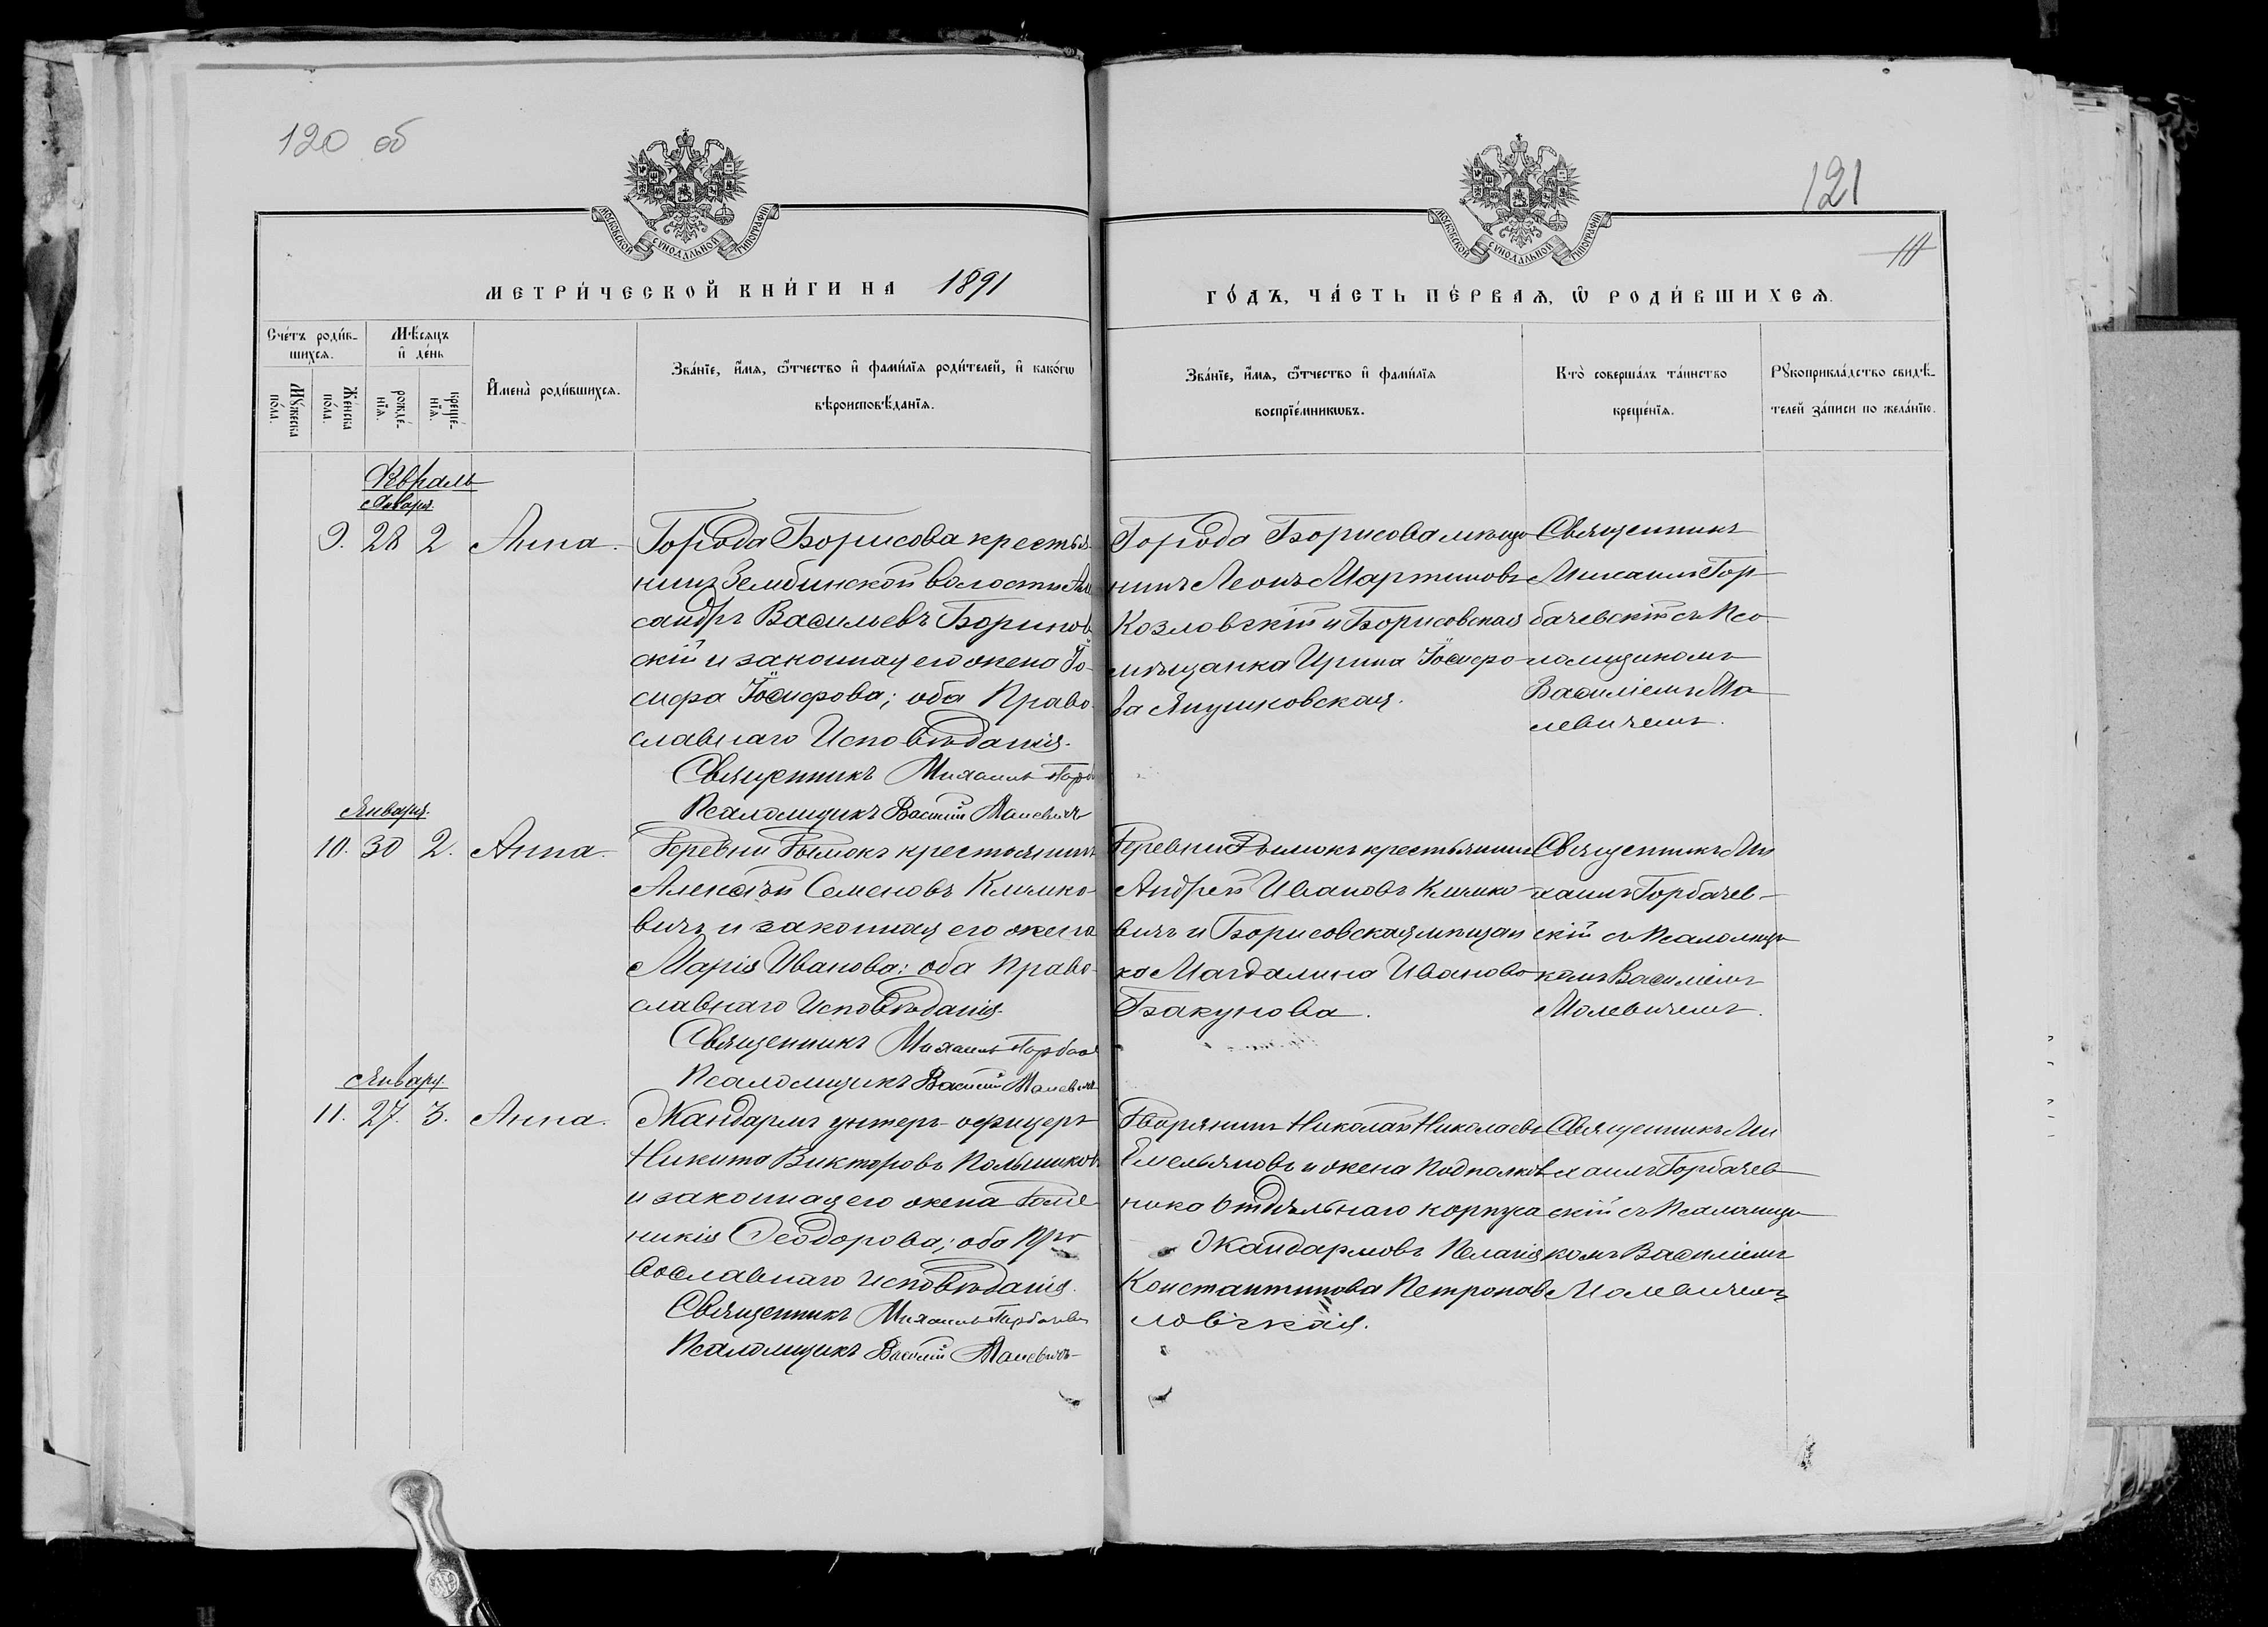 120 об
121
10
МОСКОВСКОЙ СУНОДАЛЬНОЙ ТИПОГРАФІИ
МОСКОВСКОЙ СУНОДАЛЬНОЙ ТИПОГРАФІИ
МЕТРИ́ЧЕСКОЙ КНИ́ГИ НА 1891
ГО́ДЪ, ЧА́СТЬ ПЕ́РВАѦ, Ѽ РОДИ́ВШИХСѦ.
Сче́тъ роди́в-
шихсѧ.
Мѣ́сѧцъ
и҆ де́нь
Мꙋ́жеска
по́ла.
Же́нска
по́ла.
рожде́-
нїѧ.
креще́-
нїѧ.
И҆мена̀ роди́вшихсѧ.
Зва́нїе, и҆́мѧ, ѻ҆́тчество и҆ фами́лїѧ роди́телей, и҆ како́гѡ
вѣроисповѣ́данїѧ.
Зва́нїе, и҆́мѧ, ѻ҆́тчество и҆ фами́лїѧ
воспрїе́мникѡвъ.
Кто̀ соверша́лъ та́инство
креще́нїѧ.
Рꙋкоприкла́дство свидѣ́-
телей за́писи по жела́нїю.
Февраль
Января.
9. 28 2 Анна.
Города Борисова крестья-
нинъ Зембинской волости Але
сандръ Васильевъ
скій и законная его жена Іо-
сифа Іосифова; оба Право-
славнаго Исповѣданія.
Священникъ Михаилъ Горб
Псаломщикъ Василій Малевичъ
Города Борисова мѣща
нинъ Леонъ Мартиновъ
Козловскій и Борисовская
мѣщанка Ирина Іосифо-
ва Янушковская.
Священникъ
Михаилъ Гор-
бачевскій съ Пса-
ломщикомъ
Василіемъ Ма
левичемъ.
Января.
10. 30 2. Анна.
Деревни Дымокъ крестьянинъ
Алексѣй Семеновъ Климко-
вичъ и законная его жена
Марія Иванова: оба Право-
славнаго Исповѣданія.
Священникъ Михаилъ Горбаче
Псаломщикъ Василій Малевичъ
Деревни Дымокъ крестьянинъ
Андрей Ивановъ Климко-
вичъ и Борисовская мѣщан
ка Магдалина Иванова
Бакунова.
Священникъ Ми
хаилъ Горбачев-
скій съ Псаломщи-
комъ Василіемъ
Малевичемъ.
Января
11. 27. 3. Анна.
Жандармъ унтеръ-офицеръ
Никита Викторовъ
и законная его жена Доме-
никія Ѳеодорова; оба Пра-
вославнаго Исповѣданія.
Священникъ Михаилъ Горбачевс
Псаломщикъ Василій Малевичъ
Дворянинъ Николай Николаевъ
Емельяновъ и жена Подполков
ника Отдѣльнаго корпуса
Жандармовъ Пелагія
Константинова Петропав
ловская.
Священникъ Ми
хаилъ Горбачев
скій съ Псаломщи-
комъ Василіемъ
Малевичемъ